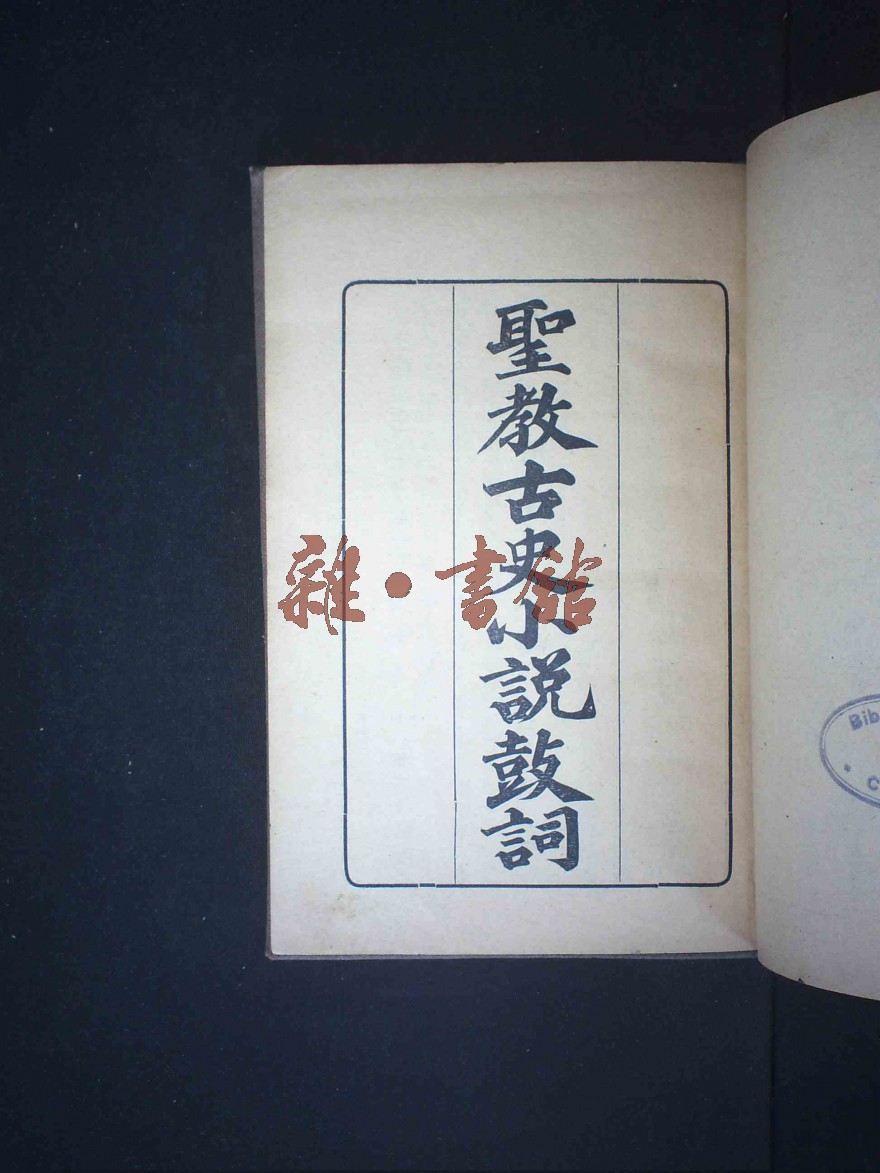 聖教古史小説鼓詞
雜·書館
Bib
C